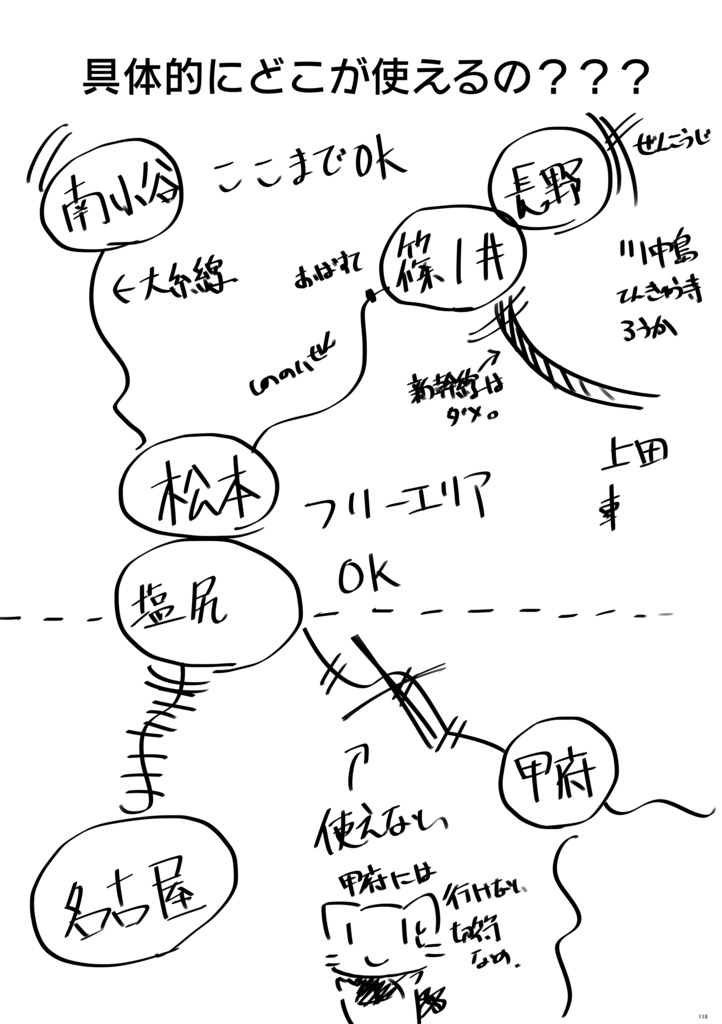 具体的にどこが使えるの？？？
南小谷
ここまでOK
長野
ぜんこうじ
篠ノ井
おばすて
←大糸線
しののいせん
川中島
てんきゅう寺
ろうか
新幹線は
ダメ。
上田
車
松本
フリーエリア
OK
塩尻
甲府
使えない
甲府には
行けない
切符
なの。
名古屋
118